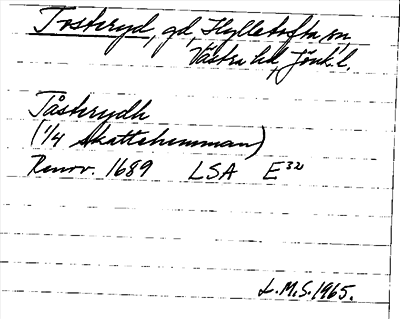 Tosteryd, gd, Hylletofta sn,
Västra hd, Jönk. l.
Tåsterydh
(1/4 skattehemman)
Renov. 1689 LSA E32
L.M.S. 1965.